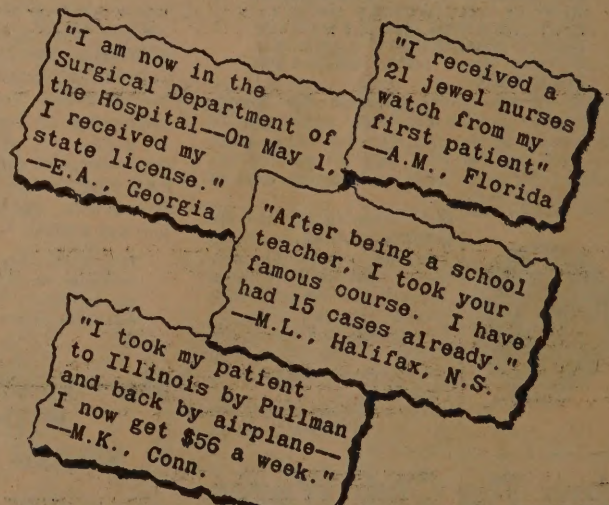 "I am now in the
Surgical Department of
the Hospital—On May 1,
I received my
state license."
—E.A., Georgia
"I received a
21 jewel nurses
watch from my
first patient"
—A.M., Florida
"After being a school
teacher, I took your
famous course. I have
had 15 cases already."
—M.L., Halifax, N.S.
"I took my patient
to Illinois by Pullman
and back by airplane—
I now get $56 a week."
—M.K., Conn.